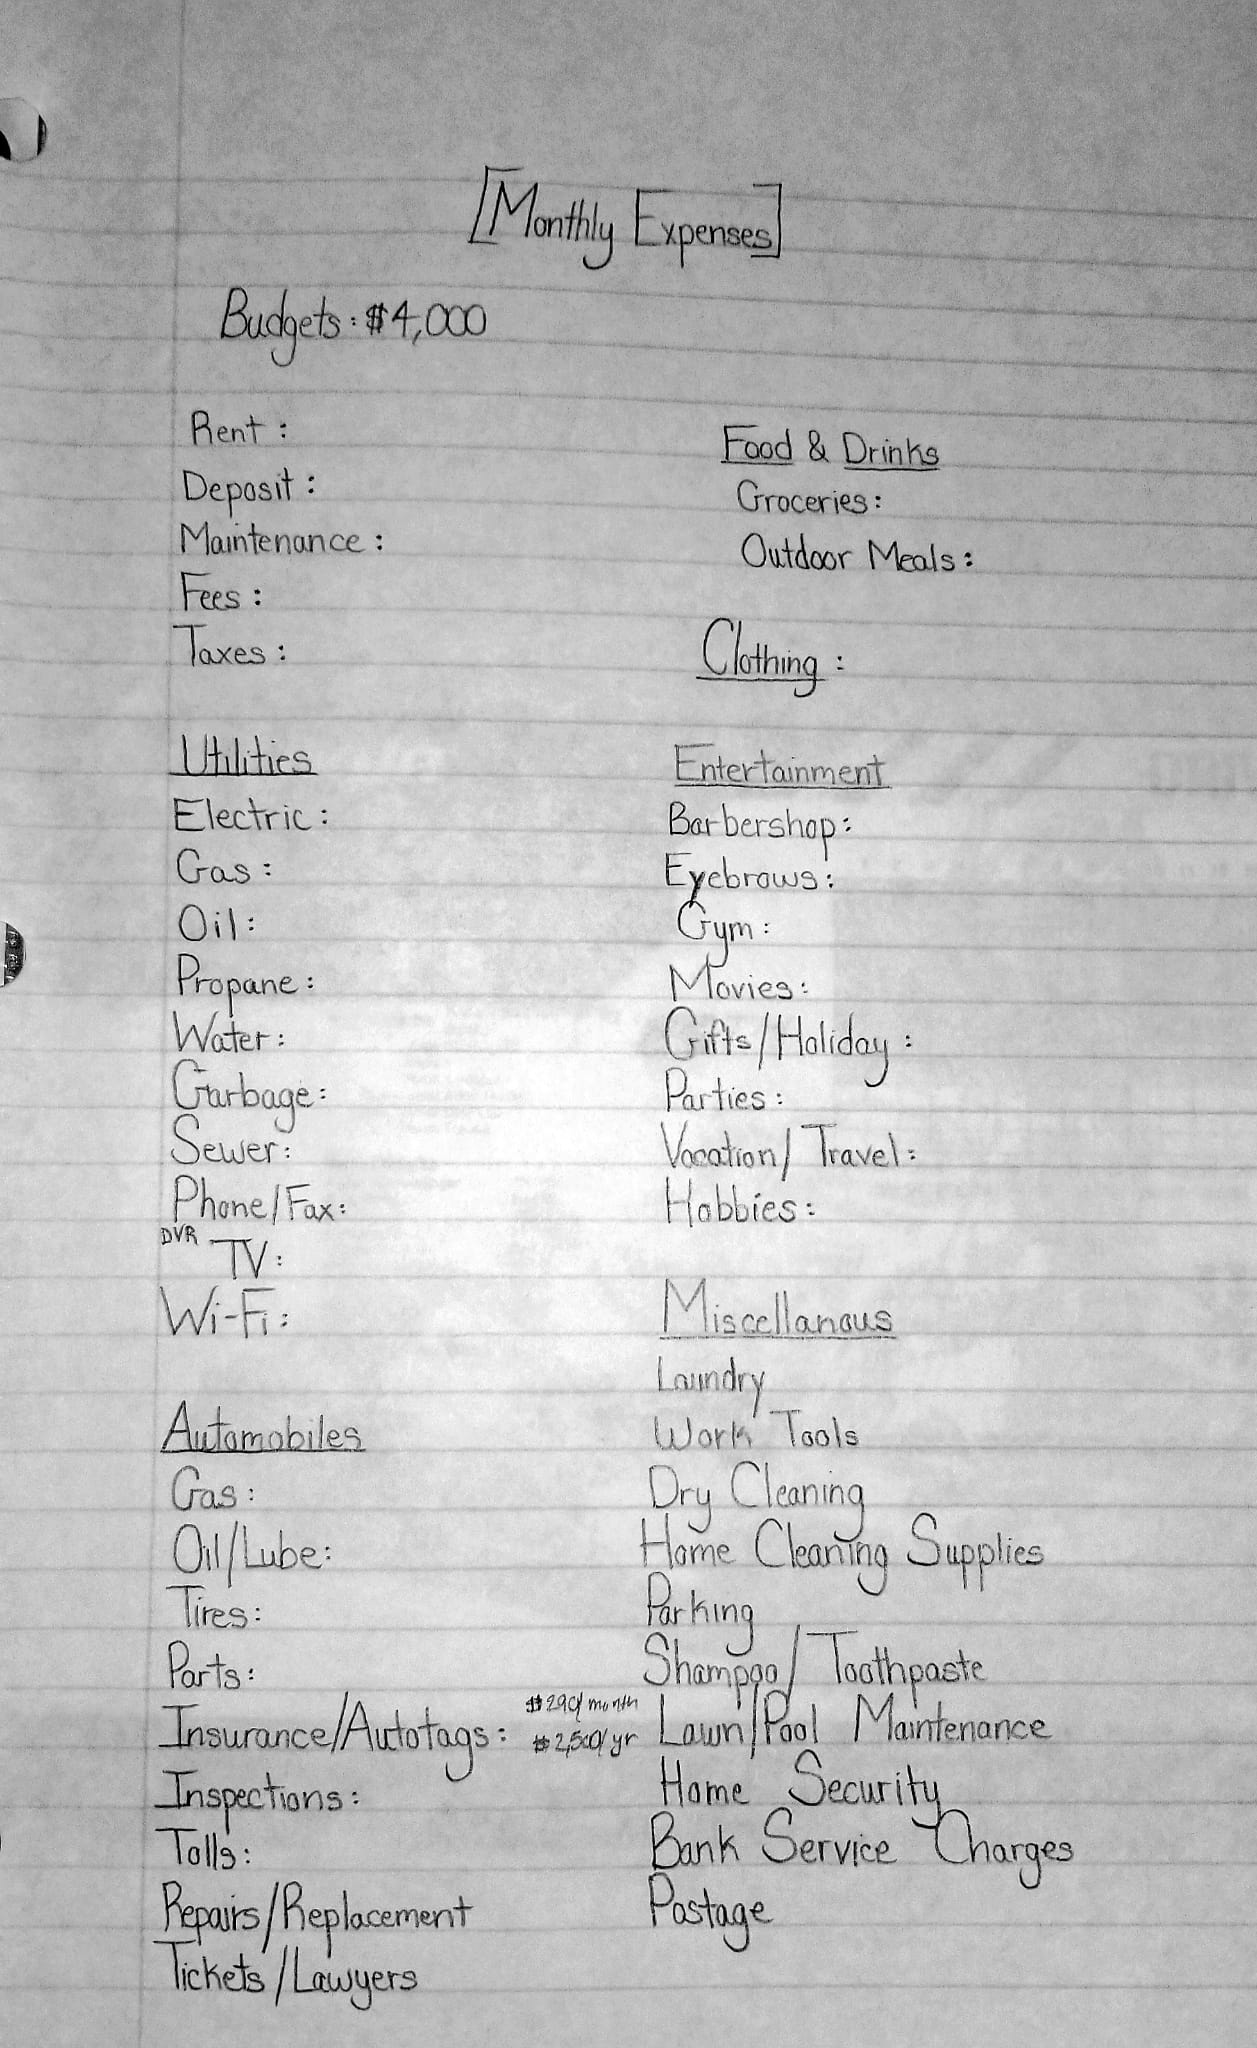 [Monthly Expenses]
Budgets: $4,000
Rent:
Deposit:
Maintenance:
Fees:
Taxes:
Utilities
Electric:
Gas:
Oil:
Propane:
Water:
Garbage:
Sewer:
Phone/Fax:
DVR TV:
Wi-Fi:
Automobiles
Gas:
Oil/Lube:
Tires:
Parts:
Insurance/Autotags: $290/month
$2,500/yr
Inspections:
Tolls:
Repairs/Replacement
Tickets/Lawyers
Food & Drinks
Groceries:
Outdoor Meals:
Clothing:
Entertainment
Barbershop:
Eyebrows:
Gym:
Movies:
Gifts/Holiday:
Parties:
Vacation/Travel:
Hobbies:
Miscellanous
Laundry
Work Tools
Dry Cleaning
Home Cleaning Supplies
Parking
Shampoo/Toothpaste
Lawn/Pool Maintenance
Home Security
Bank Service Charges
Postage